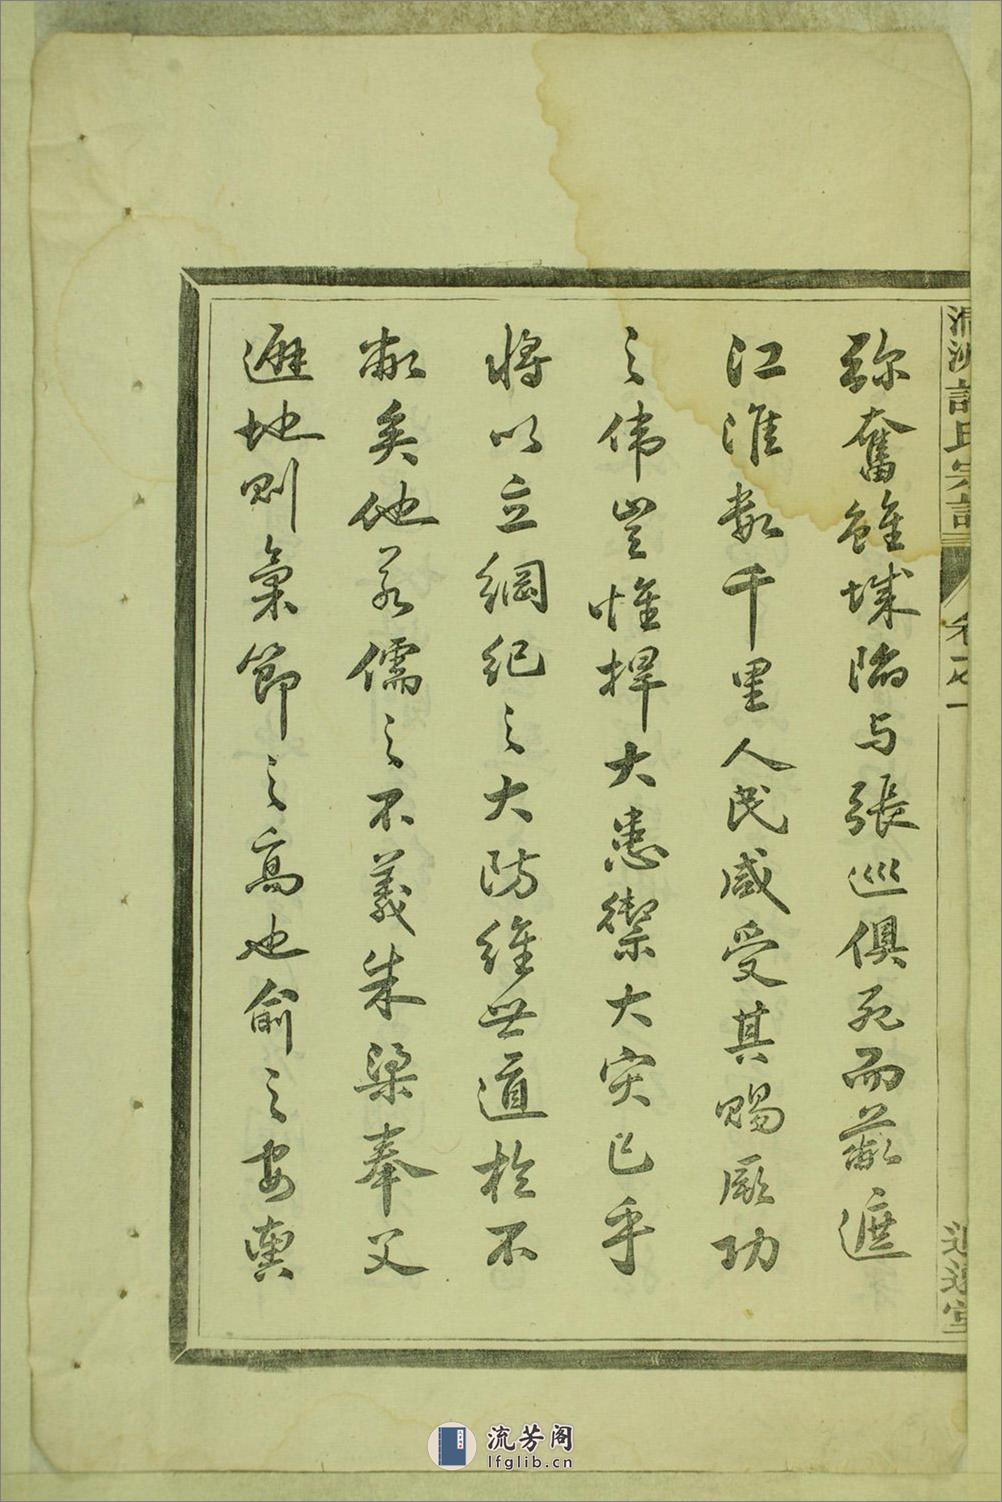 弥奮雖城陷与張巡俱死而蔽遮
江淮数千里人民咸受其賜厥功
之偉豈惟捍大患禦大灾已乎
将以立綱紀之大防維世道於不
敝矣他若儒之不義朱梁奉父
避地則氣節之高也俞之安輿
許氏宗譜
卷之一
流芳阁
lfglib.cn